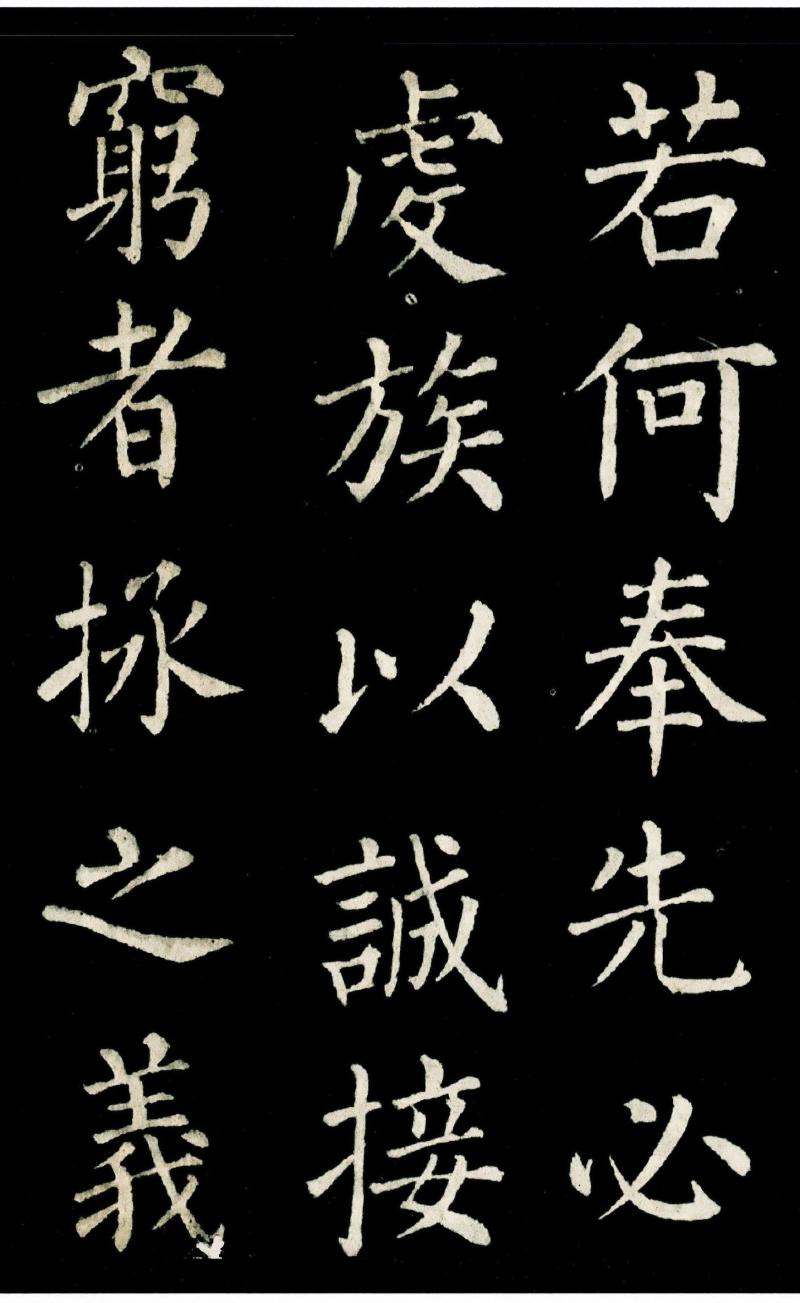 若何奉先必
虔族以誠接
窮者拯之義